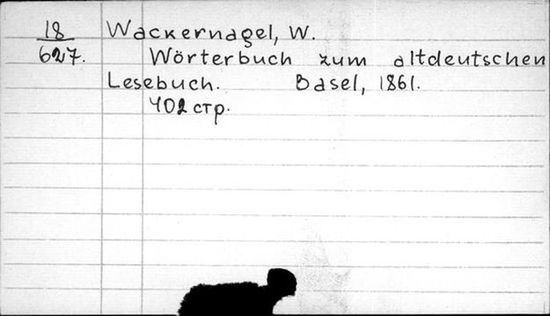 18 Wackernagel, W.
627. Wörterbuch zum altdeutschen
Lesebuch. Basel, 1861.
402 стр.